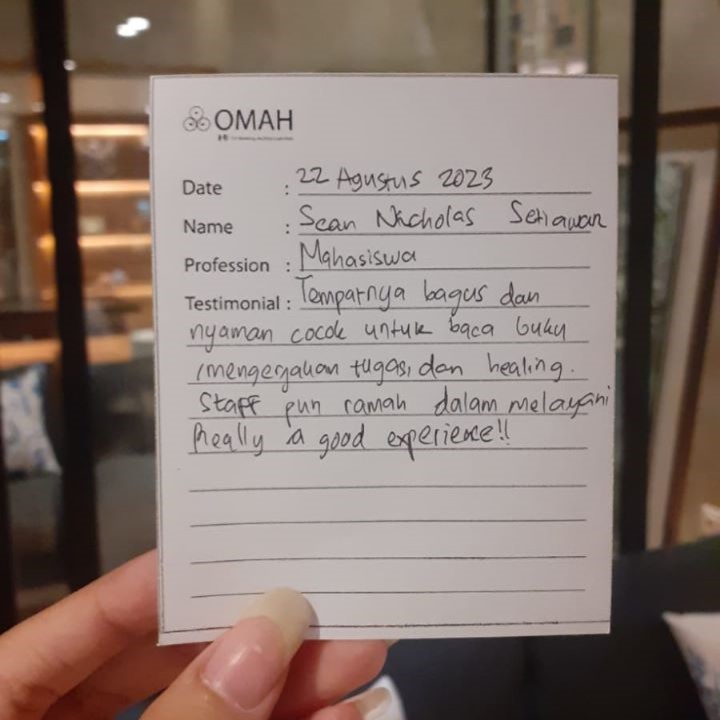 OMAH
Date : 22 Agustus 2023
Name : Sean Nicholas Setiawan
Profession : Mahasiswa
Testimonial : Tempatnya bagus dan
nyaman cocok untuk baca buku
, mengerjakan tugas, dan healing.
Staff pun ramah dalam melayani
Really a good experience!!